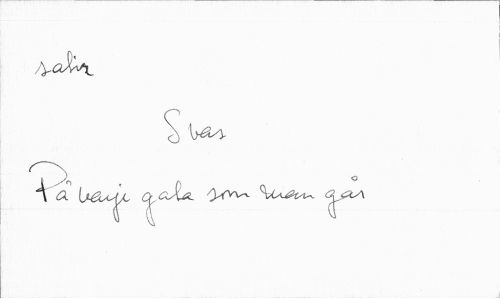 salix
Svas
På varje gata som man går